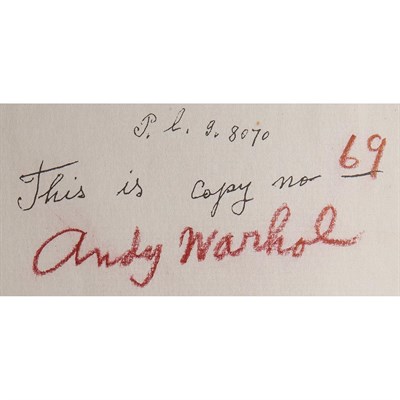 P. l. 9. 8070
This is copy no 69
Andy Warhol